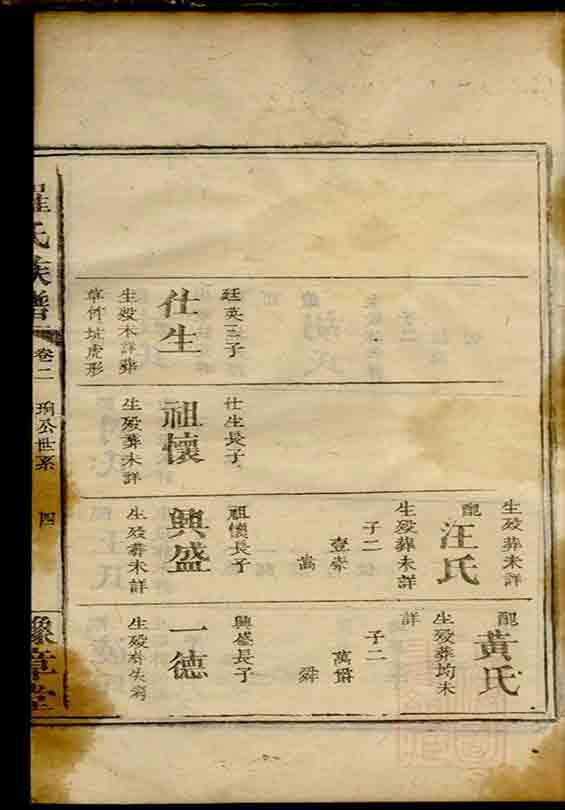 廷英三子
仕生
生歿未詳葬
草坵虎形
仕生長子
祖懷
生歿葬未詳
生歿葬未詳
配汪氏
生歿葬未詳
子二
壹崇
嵩
祖懷長子
興盛
生歿葬未詳
配黃氏
生歿葬均未
詳
子二
萬
舜
興盛長子
一德
生歿葬失
羅氏族譜 卷二 公世系 四 豫章堂